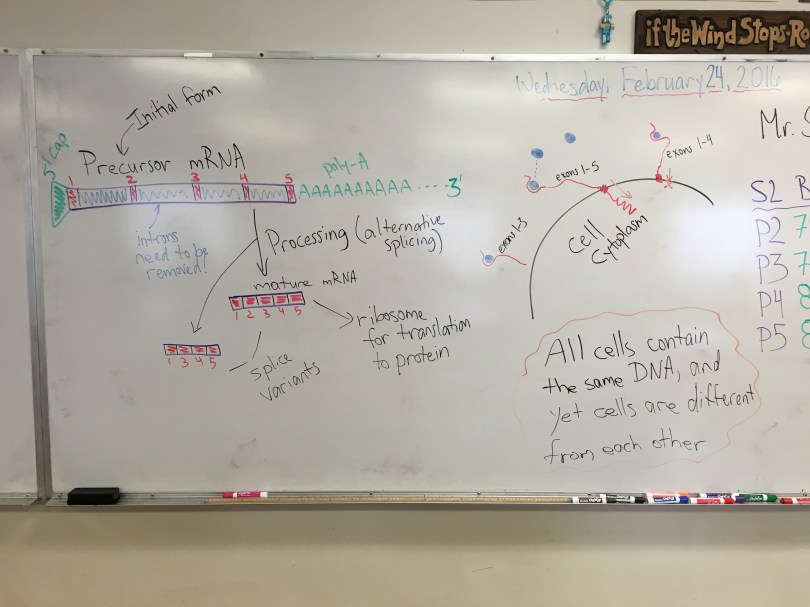 if the Wind Stops-Ro
Wednesday, February 24, 2016
Mr.
Initial form
5' cap
Precursor mRNA
poly-A
1 2 3 4 5
AAAAAAAAAA ----3'
introns
need to be
removed!
Processing (alternative
splicing)
mature mRNA
1 2 3 4 5
ribosome
for translation
to protein
1 3 4 5
splice
variants
exons 1-5
exons 1-4
exons 1-3
cell
cytoplasm
All cells contain
the same DNA, and
yet cells are different
from each other
S2 B
P2 7
P3 7
P4 8
P5 8